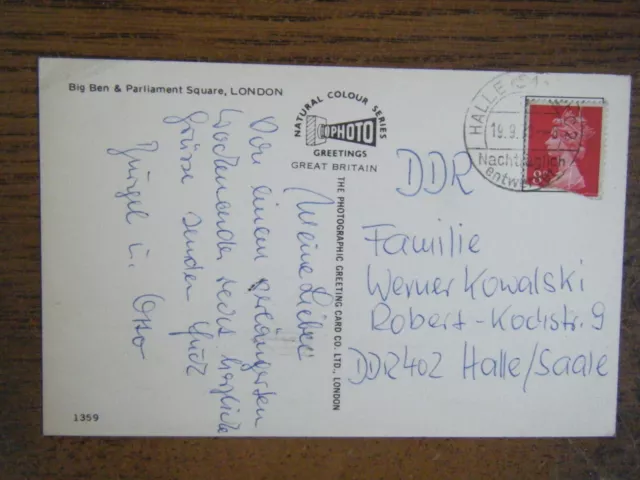 Big Ben & Parliament Square, LONDON
NATURAL COLOUR SERIES
PHOTO
GREETINGS
GREAT BRITAIN
THE PHOTOGRAPHIC GREETING CARD CO., LTD., LONDON
1359
Meine Lieben
Von einem verlängerten
Wochenende recht herzliche
Grüsse senden Euch
u. Otto
HALLE
19.9.
Nachträglich
entwertet
8
DDR
Familie
Werner Kowalski
Robert-Kochstr. 9
DDR 402 Halle/Saale